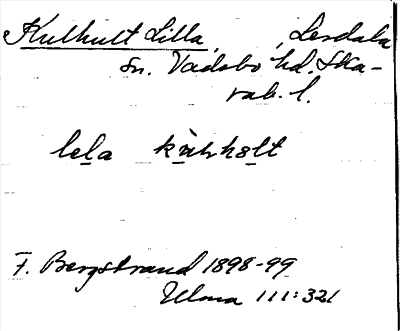 Kulhult Lilla, Lerdala
sn. Vadsbo hd. Ska-
rab. l.
lela
F. Bergstrand 1898-99
Ulma 111:321